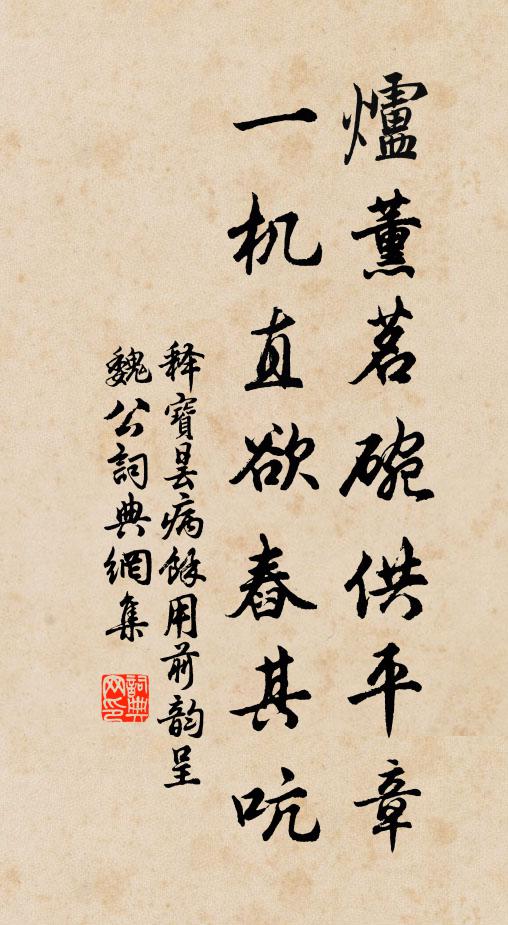 爐薰茗碗供平章
一机直欲舂其吭
释寶曇病餘用前韵呈
魏公詞典網集
詞典網印